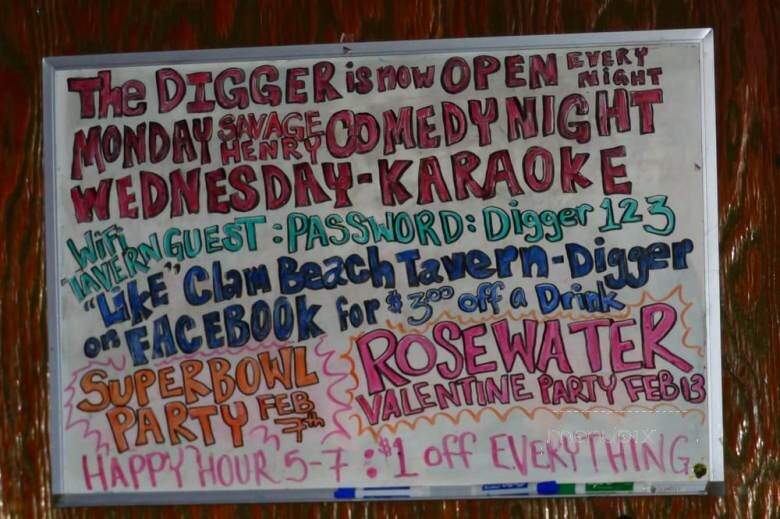 The DIGGER is now OPEN EVERY NIGHT
MONDAY SAVAGE HENRY COMEDY NIGHT
WEDNESDAY-KARAOKE
WiFi
"TAVERNGUEST: PASSWORD: Digger 123
"LIKE" Clam Beach Tavern-Digger
on FACEBOOK for $3.00 off a Drink
SUPERBOWL
PARTY FEB 7th
ROSEWATER
VALENTINE PARTY FEB 13
HAPPY HOUR 5-7: $1 off EVERYTHING
menupix